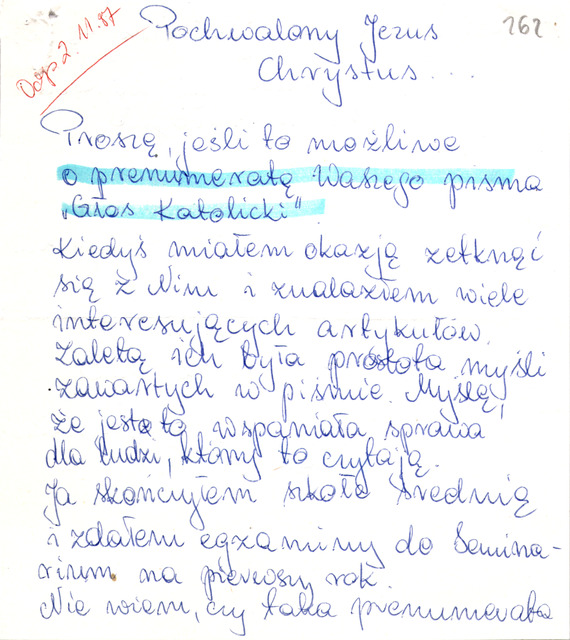 Odp 2.11.87
262
Pochwalony Jezus
Chrystus....
Proszę, jeśli to możliwe
o prenumeratę Waszego pisma
„Głos Katolicki".
Kiedyś miałem okazją zetknąć
się z Nim i znalazłem wiele
interesujących artykułów.
Zaletą ich była prostota myśli
zawartych w piśmie. Myślę,
że jest to wspaniała sprawa
dla ludzi, którzy to czytają.
Ja skończyłem szkołę średnią
i zdałem egzaminy do Semina-
rium na pierwszy rok.
Nie wiem, czy taka prenumerata